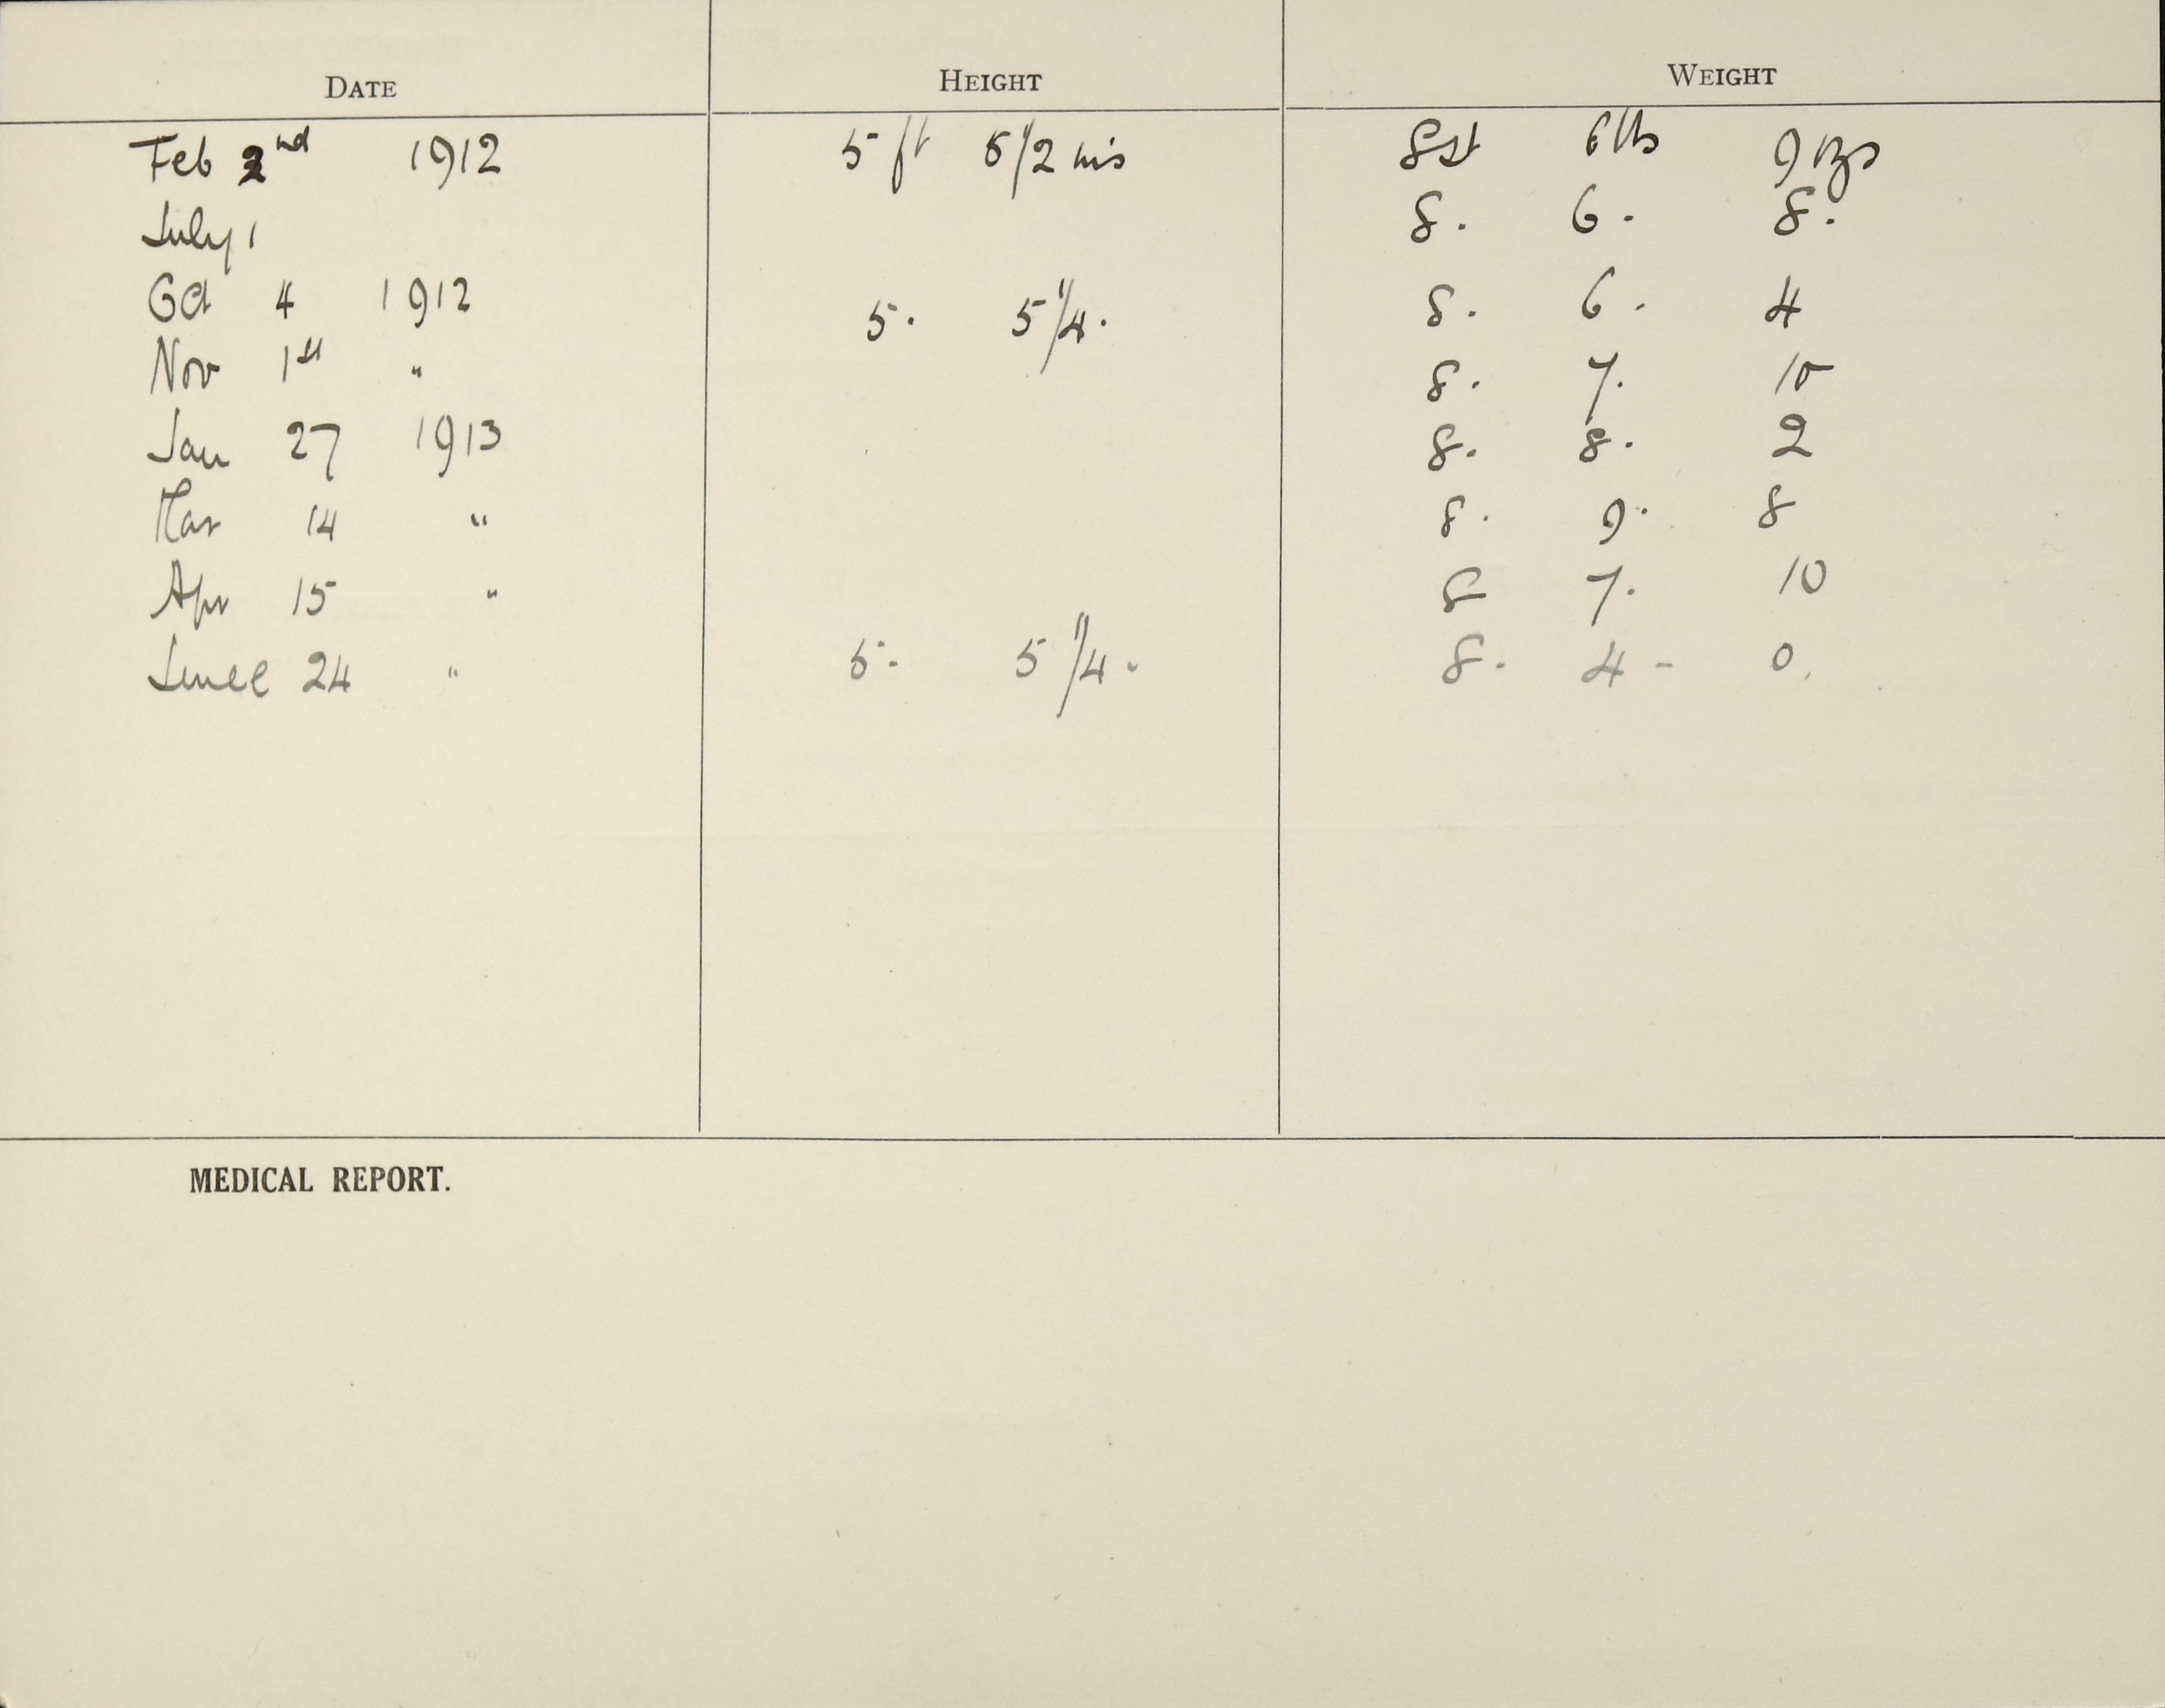 DATE HEIGHT WEIGHT
Feb 2nd 1912 5 ft 5 1/2 ins 8st 6lbs 9ozs
July 1 8. 6. 8.
Oct 4 1912 5. 5 1/4. 8. 6. 4
Nov 1st " 8. 7. 10
Jan 27 1913 8. 8. 2
Mar 14 " 8. 9. 8
Apr 15 " 8 7. 10
June 24 " 5. 5 1/4. 8. 4 - 0.
MEDICAL REPORT.